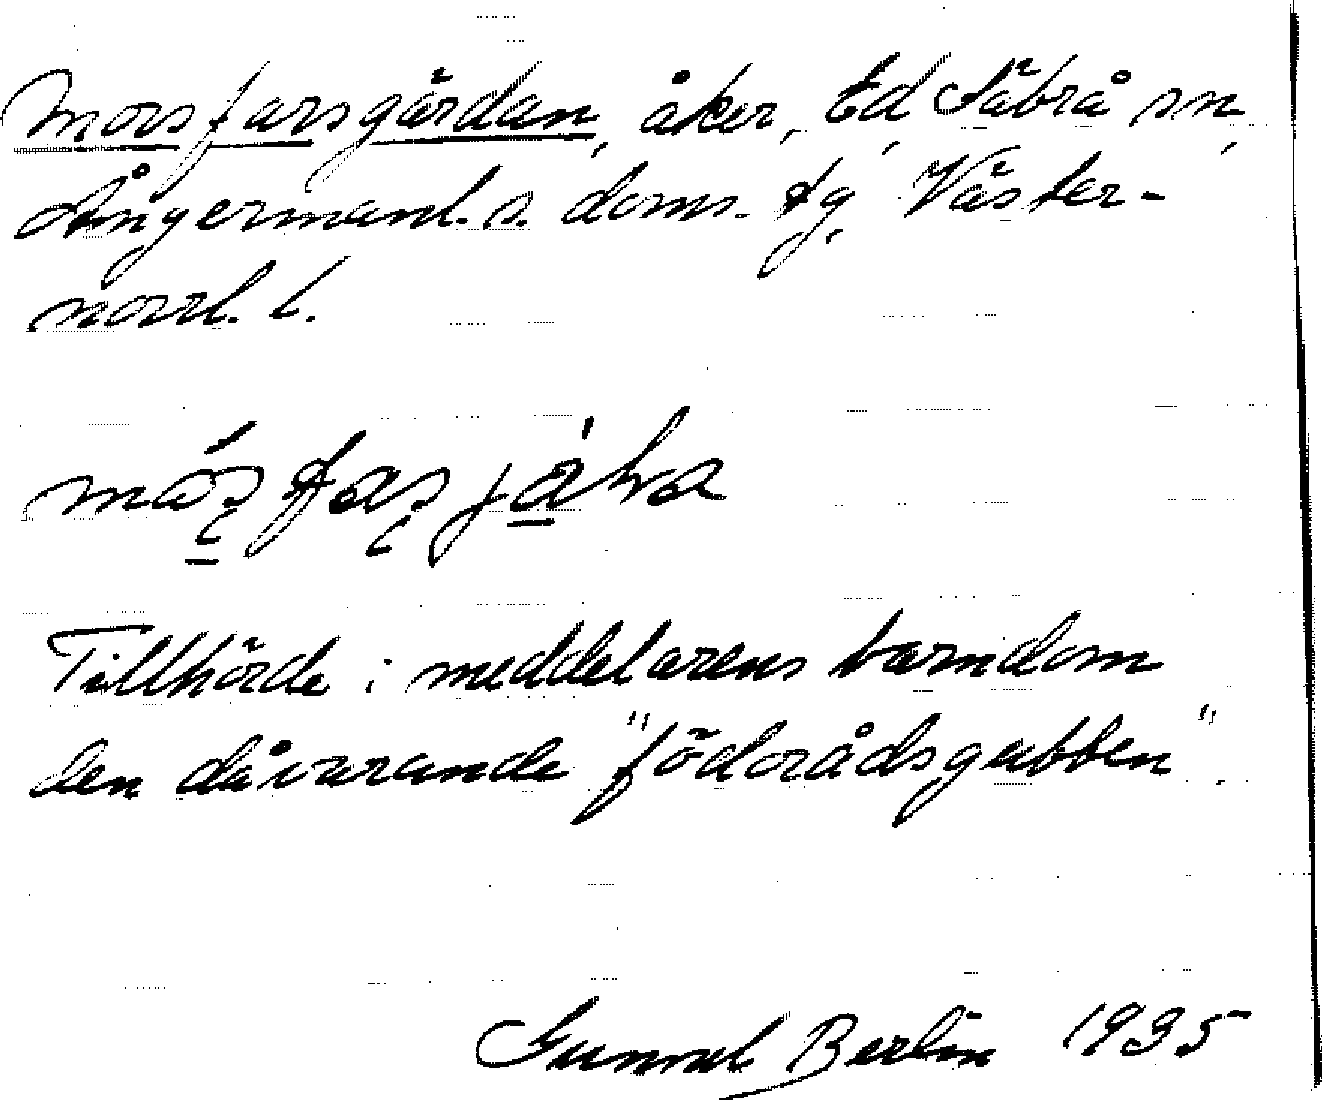 Morsfarsgårdan, åker, Ed, Säbrå sn,
Ångermanl. s. doms. tg, Väster-
norrl. l.
Tillhörde i meddelarens barndom
den dåvarande "födorådsgubben".
Gunnel Berlin 1935